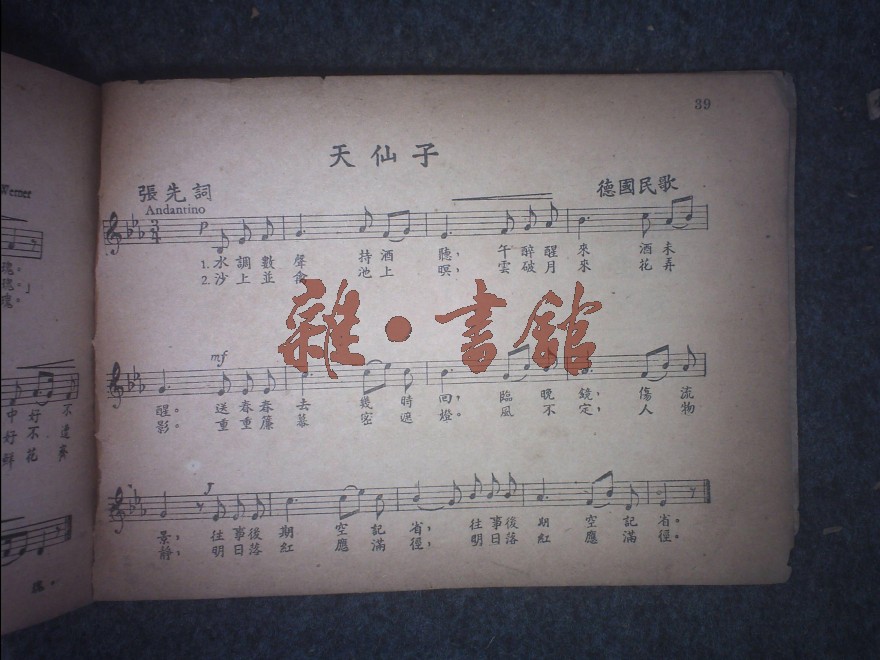 39
天仙子
張先詞
德國民歌
Andantino
p
1.水調數聲 持酒聽，午醉醒來 酒未
2.沙上並禽 池上暝，雲破月來 花弄
雜·書館
mf
醒。送春春去 幾時回，臨晚鏡，傷流
影。重重簾幕 密遮燈。風不定，人物
景，往事後期 空記省，往事後期 空記省。
靜，明日落紅 應滿徑，明日落紅 應滿徑。
Werner
瑰，
瑰。」
瑰。
中好不
好不
鮮花
瑰。